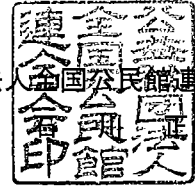 人全国公民館連
公益社團法人
全国公民館
連合会印